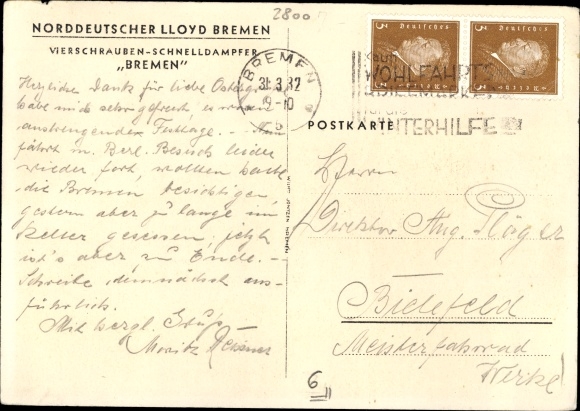 2800
NORDDEUTSCHER LLOYD BREMEN
VIERSCHRAUBEN-SCHNELLDAMPFER
„BREMEN"
Herzlichen Dank für liebe Ostergr.
habe mich sehr gefreut, es waren
anstrengende Festtage. –
fährt m. Berl. Besuch leider
wieder fort, wollten heute
die Bremen besichtigen,
gestern aber zu lange im
Keller gesessen, jetzt
ist's aber zu Ende. –
Schreibe demnächst aus-
führlich.
Mit herzl. Gruß
Moritz
BREMEN
31.3.32
9-10
5
3 Deutsches Reich 3
3 Deutsches Reich 3
WOHLFAHRTS
WINTERHILFE
POSTKARTE
Herrn
Direktor Aug.
Bielefeld
Meisterfahrrad
Werke
6